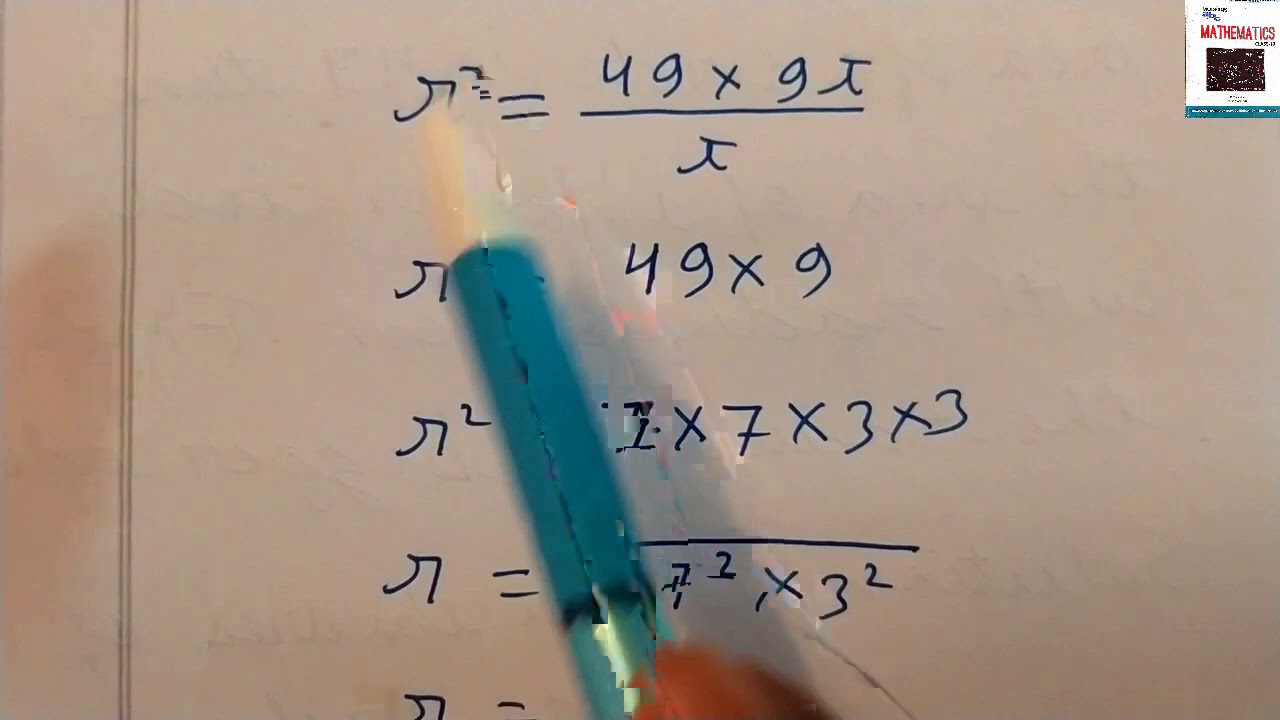 r² = 49 × 9π
π
r 49 × 9
r² 7 × 7 × 3 × 3
r = 7² × 3²
r =
MATHEMATICS